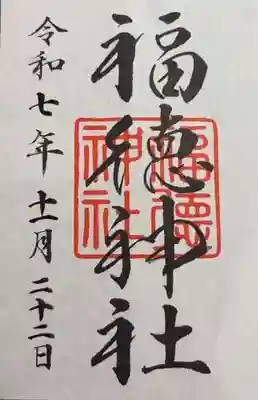 福徳神社
福徳神社
令和七年十一月二十二日